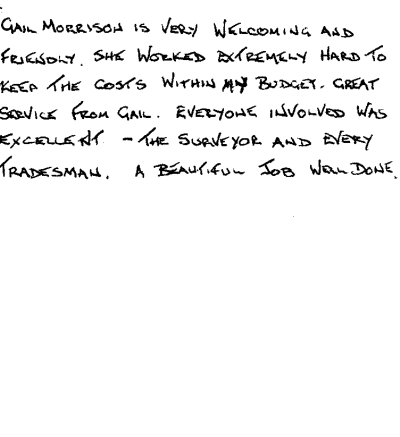 GAIL MORRISON IS VERY WELCOMING AND
FRIENDLY. SHE WORKED EXTREMELY HARD TO
KEEP THE COSTS WITHIN MY BUDGET. GREAT
SERVICE FROM GAIL. EVERYONE INVOLVED WAS
EXCELLENT - THE SURVEYOR AND EVERY
TRADESMAN. A BEAUTIFUL JOB WELL DONE.